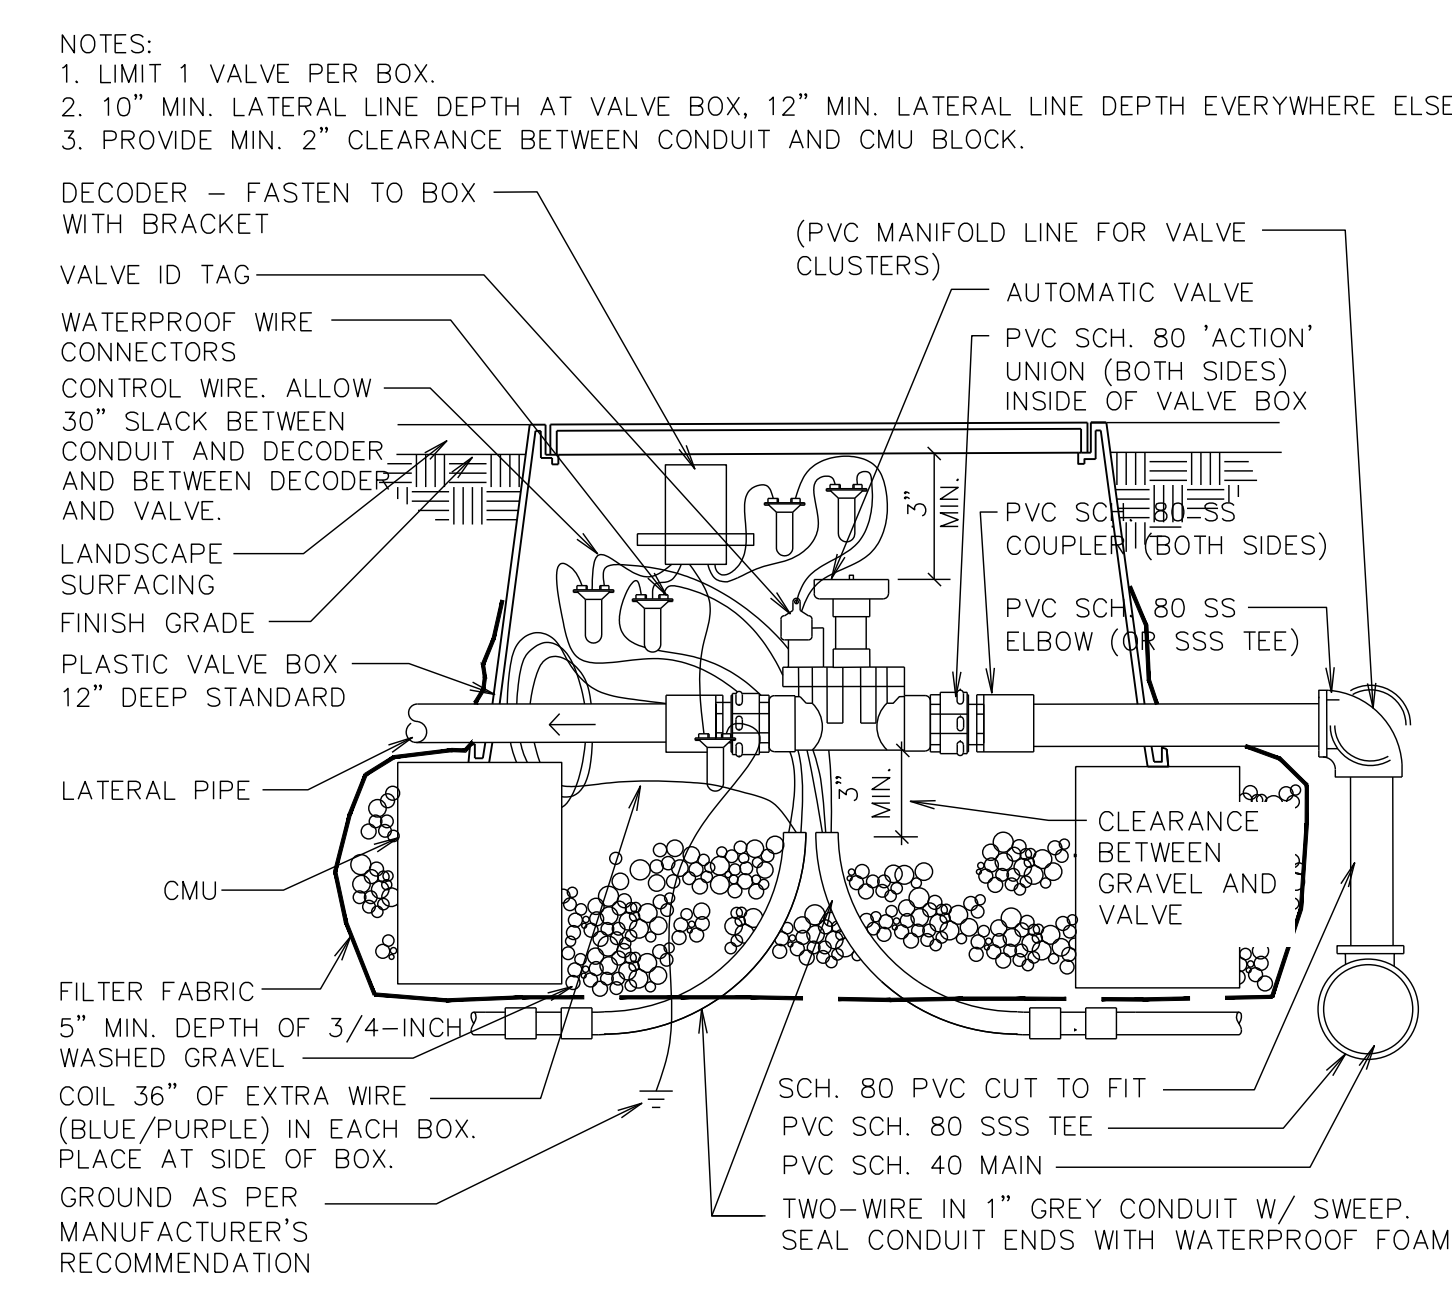 NOTES:
1. LIMIT 1 VALVE PER BOX.
2. 10" MIN. LATERAL LINE DEPTH AT VALVE BOX, 12" MIN. LATERAL LINE DEPTH EVERYWHERE ELSE
3. PROVIDE MIN. 2" CLEARANCE BETWEEN CONDUIT AND CMU BLOCK.
DECODER – FASTEN TO BOX
WITH BRACKET
VALVE ID TAG
WATERPROOF WIRE
CONNECTORS
CONTROL WIRE. ALLOW
30" SLACK BETWEEN
CONDUIT AND DECODER
AND BETWEEN DECODER
AND VALVE.
LANDSCAPE
SURFACING
FINISH GRADE
PLASTIC VALVE BOX
12" DEEP STANDARD
LATERAL PIPE
CMU
FILTER FABRIC
5" MIN. DEPTH OF 3/4-INCH
WASHED GRAVEL
COIL 36" OF EXTRA WIRE
(BLUE/PURPLE) IN EACH BOX.
PLACE AT SIDE OF BOX.
GROUND AS PER
MANUFACTURER'S
RECOMMENDATION
(PVC MANIFOLD LINE FOR VALVE
CLUSTERS)
AUTOMATIC VALVE
PVC SCH. 80 'ACTION'
UNION (BOTH SIDES)
INSIDE OF VALVE BOX
3"
MIN.
PVC SCH. 80 SS
COUPLER (BOTH SIDES)
PVC SCH. 80 SS
ELBOW (OR SSS TEE)
3"
MIN.
CLEARANCE
BETWEEN
GRAVEL AND
VALVE
SCH. 80 PVC CUT TO FIT
PVC SCH. 80 SSS TEE
PVC SCH. 40 MAIN
TWO-WIRE IN 1" GREY CONDUIT W/ SWEEP.
SEAL CONDUIT ENDS WITH WATERPROOF FOAM